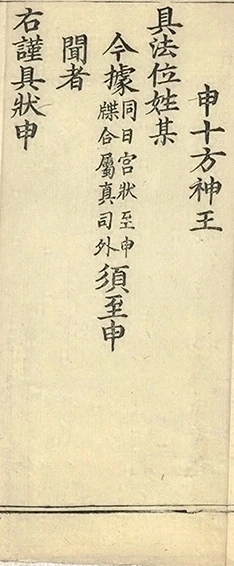 申十方神王
具法位姓某
今據同日宫狀至申
牒合屬真司外須至申
聞者
右謹具狀申